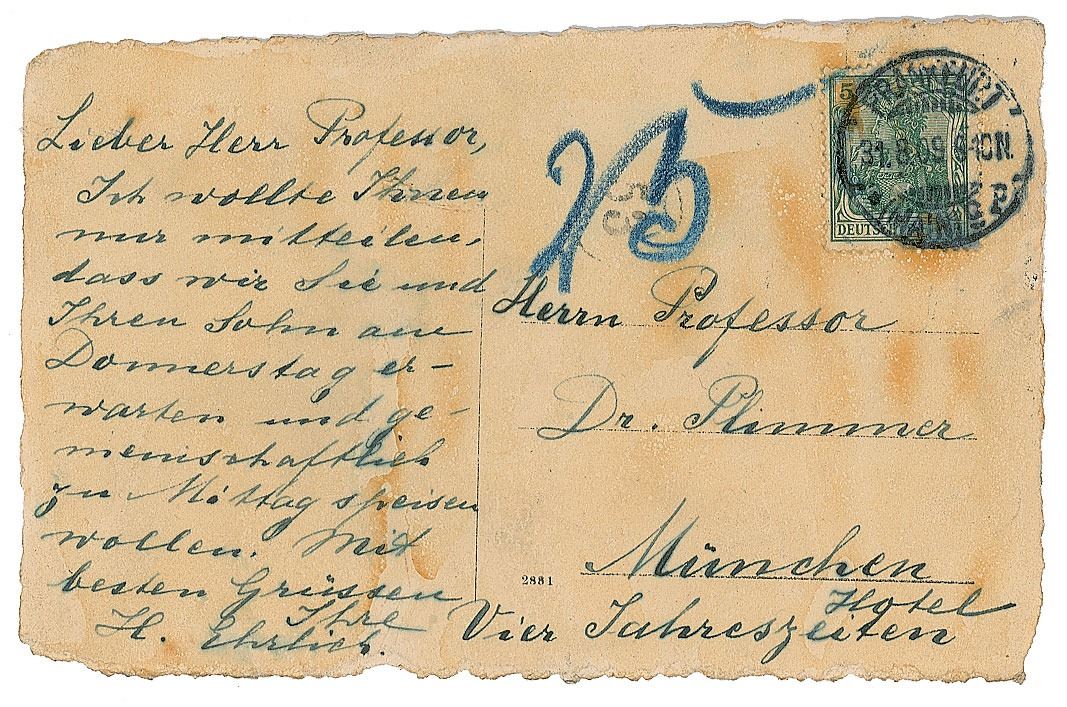 Lieber Herr Professor,
Ich wollte Ihnen
nur mitteilen,
dass wir Sie und
Ihren Sohn am
Donnerstag er-
warten und ge-
meinschaftlich
zu Mittag speisen
wollen. Mit
besten Grüssen
Ihre
H. Ehrlich.
25
5
FRANKFURT
31.8.09. 9-10N.
DEUTSCH
Herrn Professor
Dr. Plimmer
München
Hotel
Vier Jahreszeiten
2881